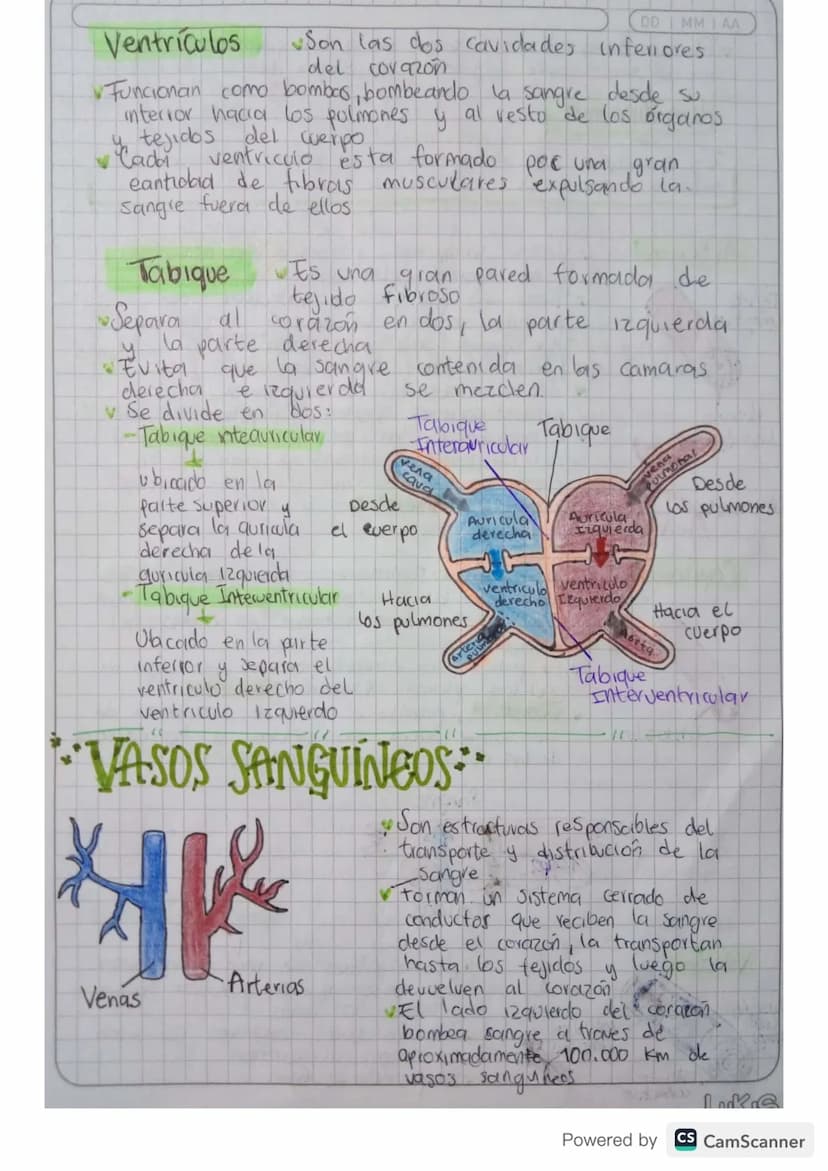 DD | MM | AA
Ventrículos
Son las dos cavidades inferiores
del corazón
Funcionan como bombas, bombeando la sangre desde su
interior hacia los pulmones y al resto de los órganos
y tejidos del cuerpo
ventriculo esta formado por una gran
cantidad de fibras musculares expulsando la
sangre fuera de ellos
Tabique
Es una gran pared formada de
tejido fibroso
Separa al corazón en dos, la parte izquierda
y la parte derecha
Evita que la sangre contenida en las camaras
derecha e izquierda se mezclen
Se divide en dos:
- Tabique inteauricular
Ubicado en la
parte superior y
separa la auricula
derecha de la
auricula izquierda
- Tabique Interventricular
Ubicado en la parte
inferior y separa el
ventriculo derecho del
ventriculo izquierdo
Tabique
Interauricular
Tabique
vena
cava
vena
pulmonar
Desde
el cuerpo
Desde
los pulmones
Auricula
derecha
Auricula
Izquierda
ventriculo
derecho
ventriculo
Izquierdo
Hacia
los pulmones
Hacia el
cuerpo
Arteria
Aorta
Tabique
Interventricular
VASOS SANGUÍNEOS
Venas
Arterias
Son estructuras responsables del
transporte y distribución de la
sangre
Forman un sistema cerrado de
conductos que reciben la sangre
desde el corazón, la transportan
hasta los tejidos y luego la
devuelven al corazón
El lado izquierdo del corazón
bombea sangre a traves de
aproximadamente 100.000 Km de
vasos sanguineos
Powered by CS CamScanner